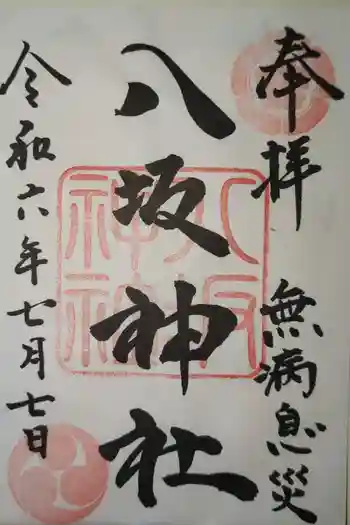 奉拝 無病息災
八坂神社
令和六年七月七日
八坂
神社